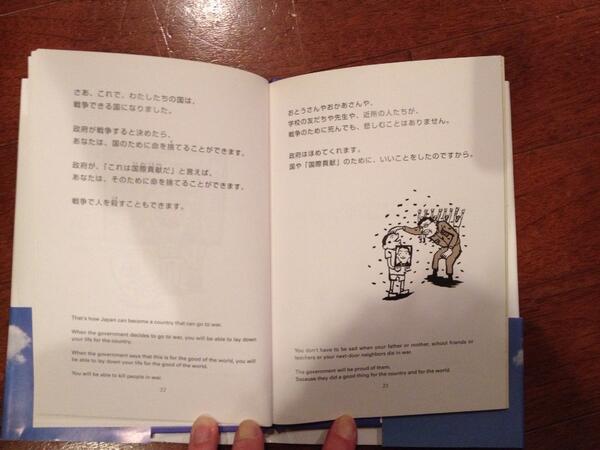 さあ、これで、わたしたちの国は、
戦争できる国になりました。
政府が戦争すると決めたら、
あなたは、国のために命を捨てることができます。
政府が、「これは国際貢献だ」と言えば、
あなたは、そのために命を捨てることができます。
戦争で人を殺すこともできます。
That's how Japan can become a country that can go to war.
When the government decides to go to war, you will be able to lay down
your life for the country.
When the government says that this is for the good of the world, you will
be able to lay down your life for the good of the world.
You will be able to kill people in war.
22
おとうさんやおかあさんや、
学校の友だちや先生や、近所の人たちが、
戦争のために死んでも、悲しむことはありません。
政府はほめてくれます。
国や「国際貢献」のために、いいことをしたのですから。
You don't have to be sad when your father or mother, school friends or
teachers or your next-door neighbors die in war.
The government will be proud of them.
Because they did a good thing for the country and for the world.
23